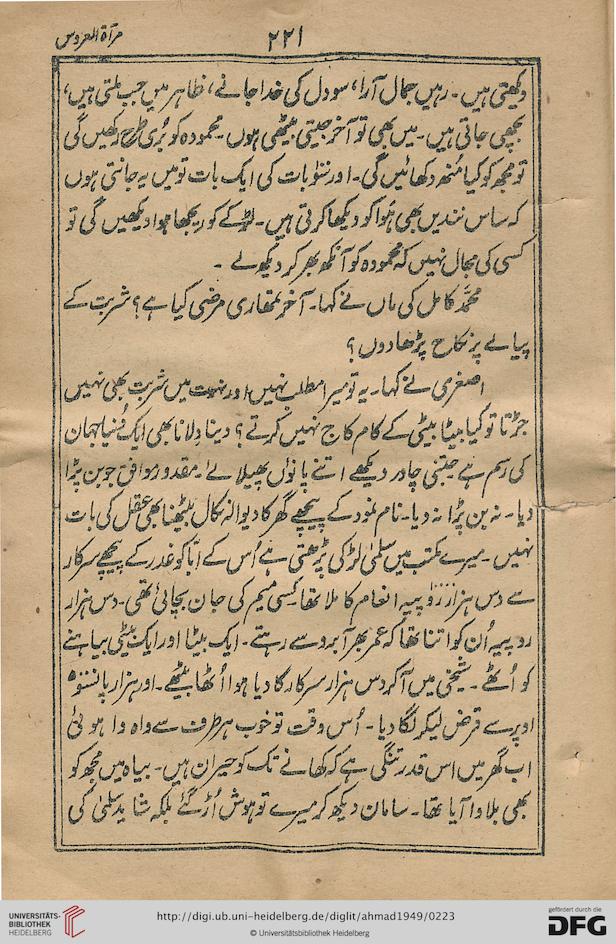 مرآۃ العروس
۲۲۱
دیکھتی ہیں۔ رہیں جمال آرا، سو دل کی خدا جانے، ظاہر میں جب ملتی ہیں،
بچھی جاتی ہیں۔ میں بھی تو آخر جیتی بیٹھی ہوں۔ محمودہ کو بُری طرح رکھیں گی
تو مجھ کو کیا مُنھ دکھائیں گی۔ اور سَو بات کی ایک بات تو میں یہ جانتی ہوں
کہ ساس نندیں بھی ہَوا کو دیکھا کرتی ہیں۔ لڑکے کو ریجھا ہوا دیکھیں گی تو
کسی کی مجال نہیں کہ محمودہ کو آنکھ بھر کر دیکھ لے۔
محمد کامل کی ماں نے کہا۔ آخر تمھاری مرضی کیا ہے؟ شربت کے
پیالے پر نکاح پڑھا دوں؟
اصغری نے کہا۔ یہ تو میرا مطلب نہیں اور نہوت میں شربت بھی نہیں
جڑتا تو کیا بیٹا بیٹی کے کام کاج نہیں کرتے؟ دینا دلانا بھی ایک دُنیا جہان
کی رسم ہے جتنی چادر دیکھے اتنے پانوں پھیلائے۔ مقدور موافق جو بن پڑا
دیا۔ نہ بن پڑا نہ دیا۔ نام نمود کے پیچھے گھر کا دیوالہ نکال بیٹھنا بھی عقل کی بات
نہیں۔ میرے مکتب میں سلمیٰ لڑکی پڑھتی ہے اُس کے ابّا کو غدر کے پیچھے سرکار
سے دس ہزار روپیہ انعام کا ملا تھا کسی میم کی جان بچائی تھی۔ دس ہزار
روپیہ اُن کو اتنا تھا کہ عمر بھر آبرو سے رہتے۔ ایک بیٹا اور ایک بیٹی بیاہنے
کو اُٹھے۔ شیخی میں آکر دس ہزار سرکار کا دیا ہوا اُٹھا بیٹھے۔ اور ہزار پانسو
اوپر سے قرض لیکر لگا دیا۔ اُس وقت تو خوب ہر طرف سے واہ وا ہوئی
اب گھر میں اس قدر تنگی ہے کہ کھانے تک کو حیران ہیں۔ بیاہ میں مجھ کو
بھی بلاوا آیا تھا۔ سامان دیکھ کر میرے تو ہوش اُڑ گئے بلکہ شاید سلمیٰ کی
UNIVERSITÄTS-
BIBLIOTHEK
HEIDELBERG
http://digi.ub.uni-heidelberg.de/diglit/ahmad1949/0223
© Universitätsbibliothek Heidelberg
gefördert durch die
DFG